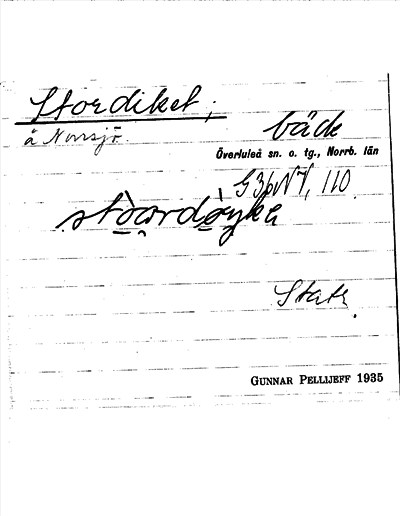 Stordiket;
bäck
å Norrsjö.
Överluleå sn. o. tg., Norrb. län
G3pN7, 110.
stòardóyke
Statr.
GUNNAR PELLIJEFF 1935